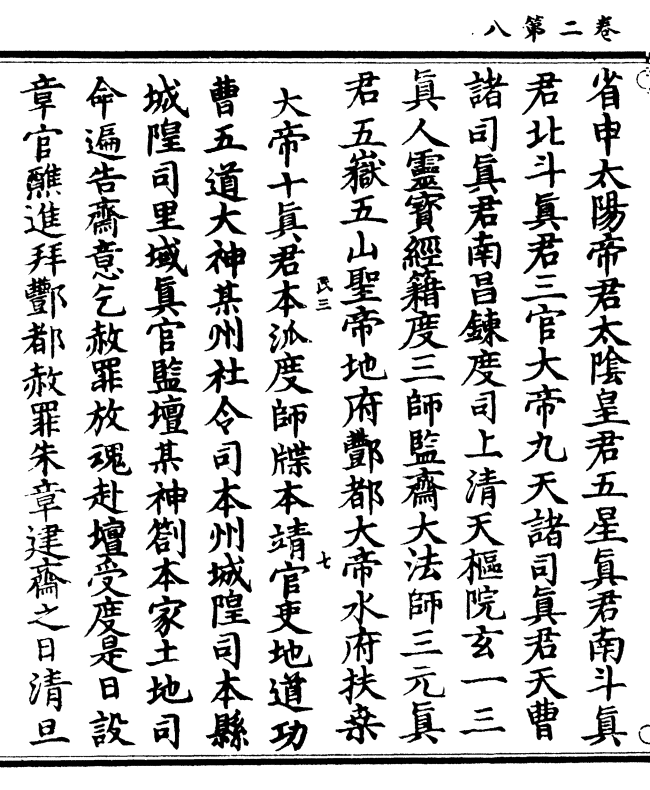 卷二第八
省申太陽帝君太陰皇君五星眞君南斗眞
君北斗眞君三官大帝九天諸司眞君天曹
諸司眞君南昌鍊度司上清天樞院玄一三
眞人靈寶經籍度三師監齋大法師三元眞
君五嶽五山聖帝地府酆都大帝水府扶桒
民三
七
大帝十眞君本派度師牒本靖官吏地道功
曹五道大神某州社令司本州城隍司本縣
城隍司里域眞官監壇某神劄本家土地司
命遍告齋意乞赦罪放魂赴壇受度是日設
章官醮進拜酆都赦罪朱章建齋之日清旦